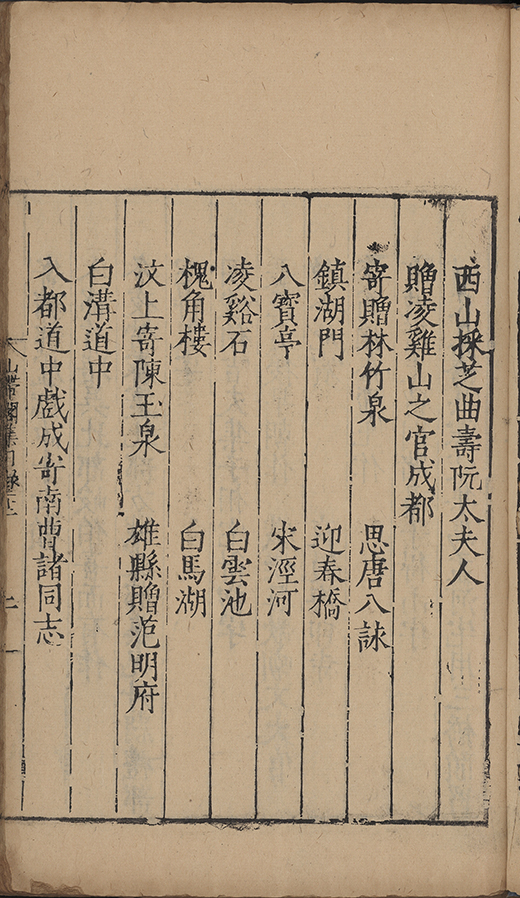 西山採芝曲壽阮太夫人
贈凌雞山之官成都
寄贈林竹泉　思唐八詠
鎮湖門　迎春橋
八寶亭　宋涇河
凌谿石　白雲池
槐角樓　白馬湖
汶上寄陳玉泉　雄縣贈范明府
白溝道中
入都道中戲成寄南曹諸同志
山帶閣集目錄